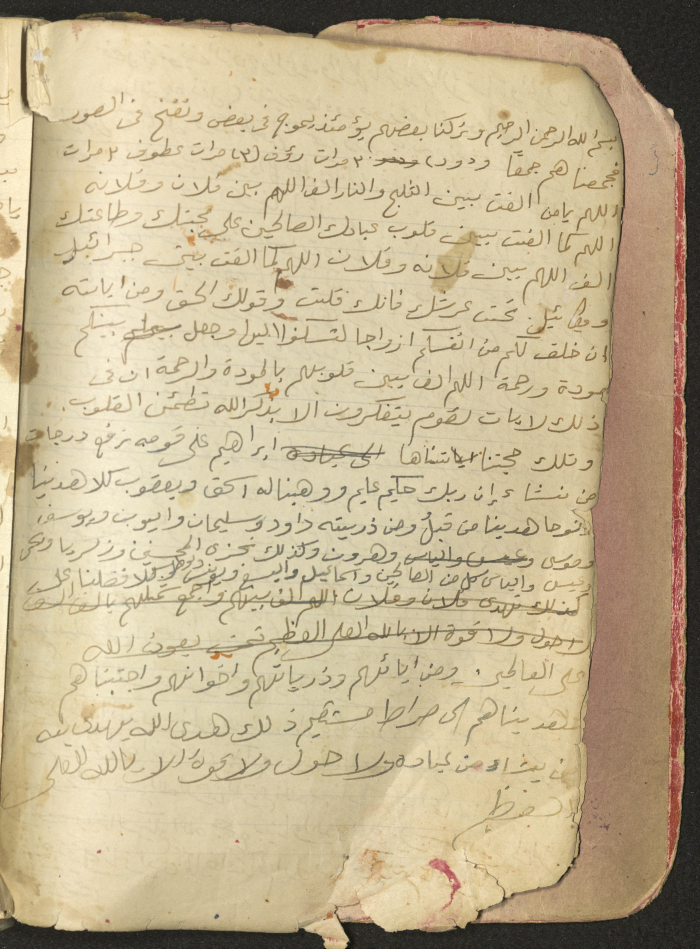 بسم الله الرحمن الرحيم وتركنا بعضهم يؤمئذ يموج فى بعض ونفخ فى الصور
فجمعناهم جمعا ودود ٣ مرات رؤف (٣) مرات عطوف ٣ مرات
اللهم يا من الفت بين الثلج والنار الف اللهم بين فلان وفلانه
اللهم كما الفت بين قلوب عبادك الصالحين على محبتك وطاعتك
الف اللهم بين فلانه وفلان اللهم كما الفت بين جبرائيل
وميكائيل تحت عرشك فانك قلت وقولك الحق ومن اياته
ان خلق لكم من انفسكم ازواجا لتسكنوا اليها وجعل بينكم
مودة ورحمة اللهم الف بين قلوبهم بالمودة والرحمة ان فى
ذلك لايات لقوم يتفكرون الا بذكر الله تطمئن القلوب
وتلك حجتنا اتيناها ابراهيم على قومه نرفع درجات
من نشاء إن ربك حكيم عليم ووهبنا له اسحق ويعقوب كلا هدينا
ونوحا هدينا من قبل ومن ذريته داود وسليمان وايوب ويوسف
وموسى وهرون وكذلك نجزى المحسنين وزكريا ويحى
وعيس والياس كل من الصالحين واسماعيل واليسع ويونس ولوطا وكلا فضلنا على
كذلك نهدى فلان وفلان اللهم الف بينهم واجمع شملهم
لا حول ولا قوة الا بالله العلى العظيم بعون الله
على العالمين ومن ابائهم وذرياتهم واخوانهم واجتبناهم
وهديناهم الى صراط مستقيم ذلك هدى الله يهدى به
من يشاء من عباده ولا حول ولا قوة الا بالله العلى
العظيم